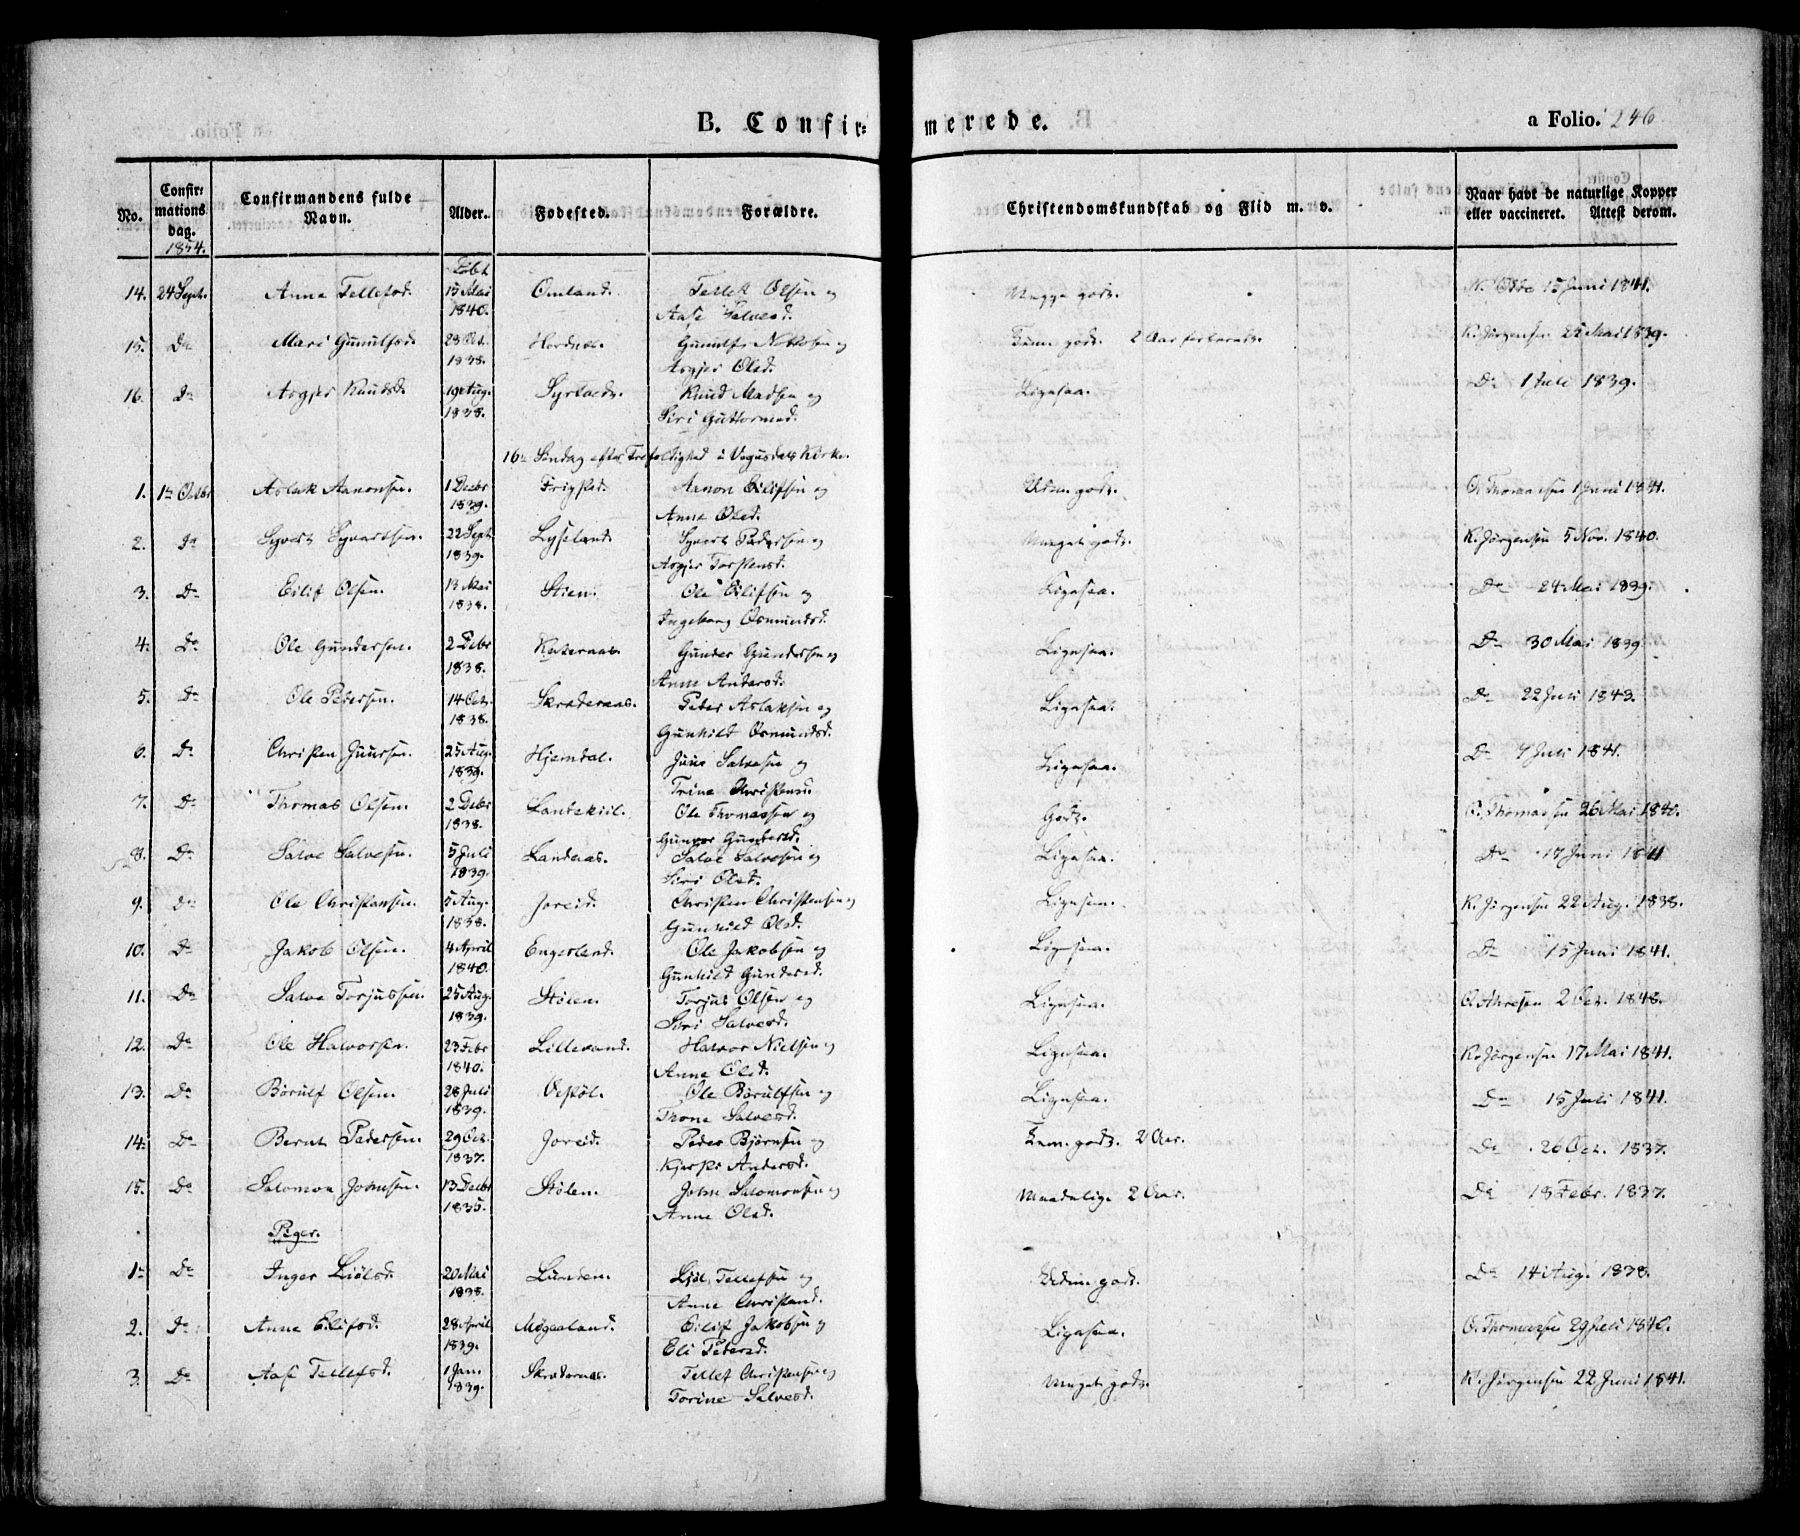 B. Confir= merede. a Folio. 246
No. Confir= mations dag. 1854. Confirmandens fulde Navn. Alder. Fødested. Forældre. Christendomskundskab og Flid m. v. Naar havt de naturlige Kopper eller vaccineret. Attest derom.
14. 24 Sept. Anna Tellefsd. 15 Mai 1840. Omland. Tellef Olsen og Aase Salvesd. Meget godt. 15 Juni 1841.
15. Do Mari Gunulfsd. 23 Oct. 1838. Hordnes. Gunulf og Asgjer Olsd. Tem. godt. 2 Aar forberedt. K. Jørgensen 25 Mai 1839.
16. Do Asgjer Knudsd. 19 Aug. 1838. Knud Madsen og Siri Guttormsd. Ligesaa. Do 1 Juli 1839.
16de Søndag efter Trefoldighed i Vegusdals Kirke.
1. 1ste Octbr Aslak Aanonsen. 1 Decbr 1839. Frigsted. Aanon Eilifsen og Anne Olsd. Udm. godt. O. Thomassen 1 Juni 1841.
2. Do Syvert Syvertsen. 22 Sept. 1839. Lyseland. Syvert Pedersen og Asgjer Torstensd. Meget godt. K. Jørgensen 5 Nov. 1840.
3. Do Eilif Olsen. 13 Mai 1838. Stien. Ole Eilifsen og Ingeborg Osmundsd. Ligesaa. Do 24 Mai 1839.
4. Do Ole Gundersen. 2 Debr 1838. Kateraas. Gunder Gundersen og Anne Andersd. Ligesaa. Do 30 Mai 1839.
5. Do Ole Pedersen. 14 Oct. 1838. Skraderaas. Peder Aslaksen og Gunhild Osmundsd. Ligesaa. Do 22 Juli 1843.
6. Do Christen Juursen. 25 Aug. 1839. Hjemdal. Juur Salvesen og Trine Christensd. Ligesaa. Do 7 Juli 1841.
7. Do Thomas Olsen. 2 Debr 1838. Landekiil. Ole Thomassen og Gunvor Gundersd. Godt. O. Thomassen 26 Mai 1840.
8. Do Salve Salvesen. 5 Juli 1839. Landaas. Salve Salvesen og Siri Olsd. Ligesaa. Do 17 Juni 1841
9. Do Ole Christensen. 5 Aug. 1838. Joreid. Christen Christensen og Gunhild Olsd. Ligesaa. K. Jørgensen 22 Aug. 1838.
10. Do Jakob Olsen. 4 April 1840. Engesland. Ole Jakobsen og Gunhild Gundersd. Ligesaa. Do 15 Juni 1841.
11. Do Salve Torjussen. 25 Aug. 1839. Stølen. Torjus Olsen og Siri Salvesd. Ligesaa. 2 Oct. 1848.
12. Do Ole Halvorsen. 23 Febr 1840. Lillesand. Halvor Nielsen og Anne Olsd. Ligesaa. K. Jørgensen 17 Mai 1841.
13. Do Børulf Olsen. 28 Juli 1839. Vestøl. Ole Børulfsen og Thone Salvesd. Ligesaa. Do 15 Juli 1841.
14. Do Bernt Pedersen. 29 Oct. 1837. Joreid. Peder Bjørnsen og Kjersti Andersd. Tem. godt. 2 Aar. Do 26 Oct. 1837.
15. Do Salomon Johnsen. 13 Decbr 1835. Stølen. John Salomonsen og Anne Olsd. Maadelig. 2 Aar. Do 18 Febr. 1837.
Piger.
1. Do Inger Liølsd. 20 Mai 1838. Lunden. Liøl Tellefsen og Anne Christensd. Udm. godt. Do 14 Aug. 1838.
2. Do Anne Eilifsd. 28 April 1839. Møgaaland. Eilif Jakobsen og Eli Pedersd. Ligesaa. O. Thomassen 29 Juli 1840.
3. Do Aase Tellefsd. 1 Jan. 1839. Skraderaas. Tellef Christensen og Torine Salvesd. Meget godt. K. Jørgensen 22 Juni 1841.